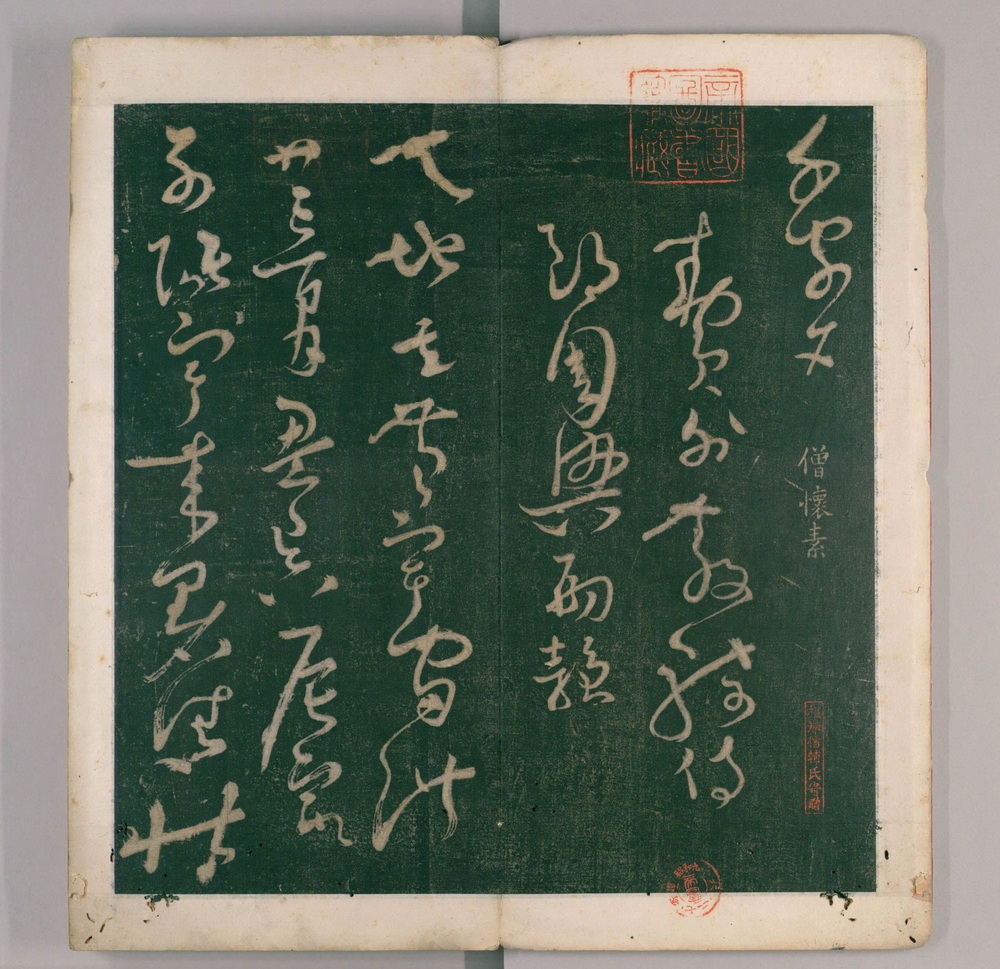 千字文
僧懷素
敕員外散騎侍
郎周興嗣韻
天地玄黃宇宙洪
荒日月盈昃辰宿
列張寒來暑往秋